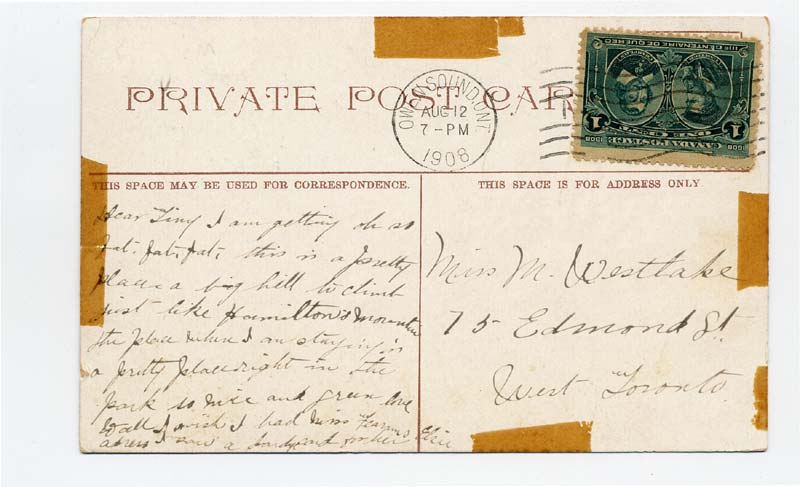 PRIVATE POST CAR
OWEN SOUND, ONT
AUG 12
7-PM
1908
IIIe CENTENAIRE DE QUEBEC
1 ONE CENT 1
1608 CANADA POSTAGE 1908
THIS SPACE MAY BE USED FOR CORRESPONDENCE.
THIS SPACE IS FOR ADDRESS ONLY.
Dear Tiny I am getting oh so
fat. fat, fat, this is a pretty
place a big hill to climb
just like Hamilton's Mountin
the place where I am staying is
a pretty place right in the
park so nice and green love
to all I wish I had Miss
adress I saw a card for her
Miss M. Westlake
75 Edmond St.
West Toronto